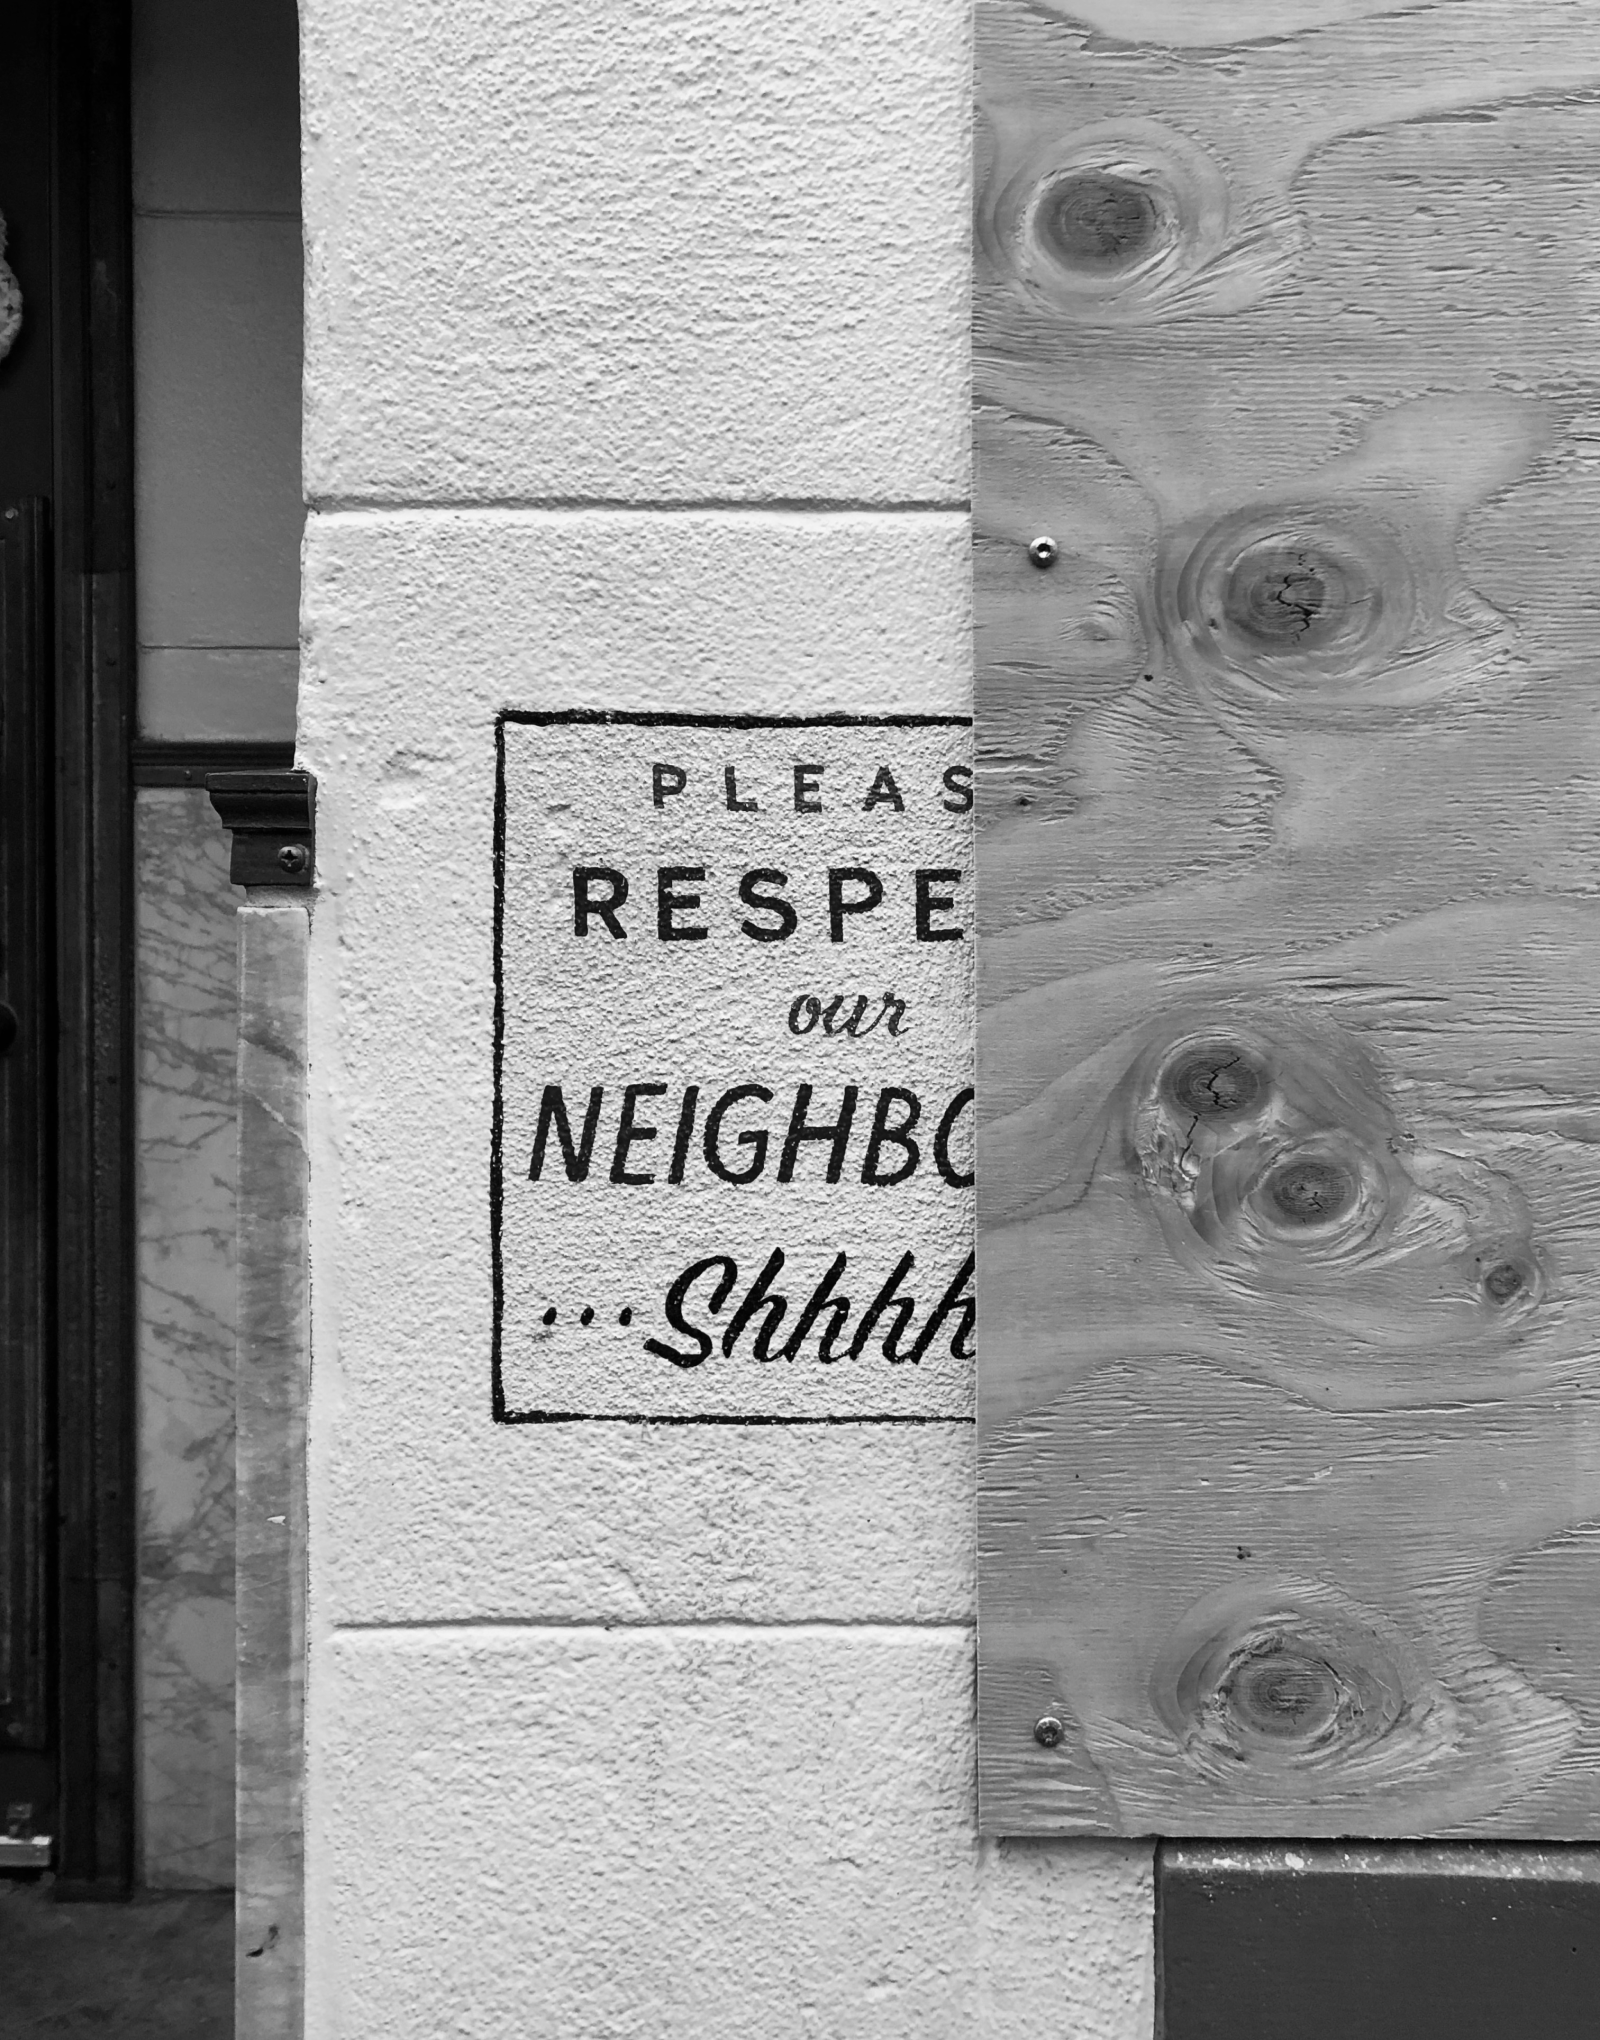 PLEAS
RESPE
our
NEIGHBO
...Shhhh